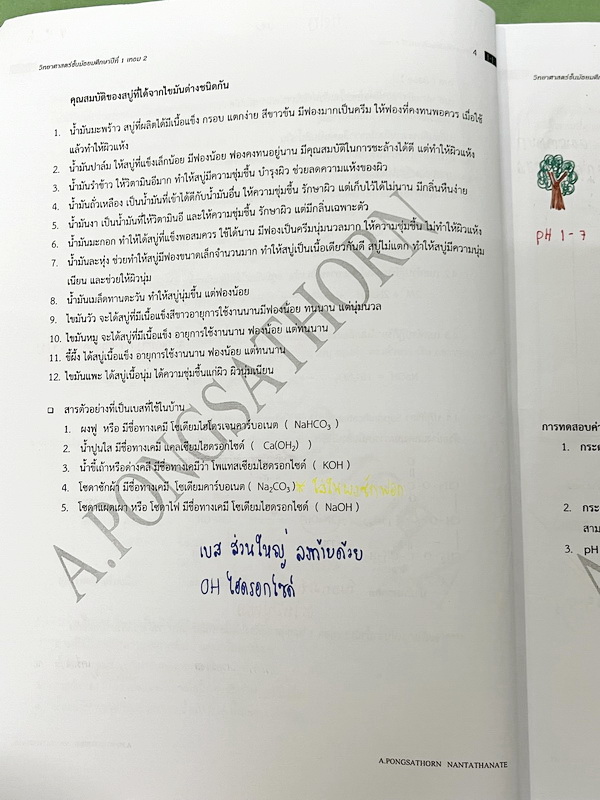 วิทยาศาสตร์ชั้นมัธยมศึกษาปีที่ 1 เทอม 2
4
คุณสมบัติของสบู่ที่ได้จากไขมันต่างชนิดกัน
1. น้ำมันมะพร้าว สบู่ที่ผลิตได้มีเนื้อแข็ง กรอบ แตกง่าย สีขาวข้น มีฟองมากเป็นครีม ให้ฟองที่คงทนพอควร เมื่อใช้
แล้วทำให้ผิวแห้ง
2. น้ำมันปาล์ม ให้สบู่ที่แข็งเล็กน้อย มีฟองน้อย ฟองคงทนอยู่นาน มีคุณสมบัติในการชะล้างได้ดี แต่ทำให้ผิวแห้ง
3. น้ำมันรำข้าว ให้วิตามินอีมาก ทำให้สบู่มีความชุ่มชื้น บำรุงผิว ช่วยลดความแห้งของผิว
4. น้ำมันถั่วเหลือง เป็นน้ำมันที่เข้าได้ดีกับน้ำมันอื่น ให้ความชุ่มชื้น รักษาผิว แต่เก็บไว้ได้ไม่นาน มีกลิ่นหืนง่าย
5. น้ำมันงา เป็นน้ำมันที่ให้วิตามินอี และให้ความชุ่มชื้น รักษาผิว แต่มีกลิ่นเฉพาะตัว
6. น้ำมันมะกอก ทำให้ได้สบู่ที่แข็งพอสมควร ใช้ได้นาน มีฟองเป็นครีมนุ่มนวลมาก ให้ความชุ่มชื้น ไม่ทำให้ผิวแห้ง
7. น้ำมันละหุ่ง ช่วยทำให้สบู่มีฟองขนาดเล็กจำนวนมาก ทำให้สบู่เป็นเนื้อเดียวกันดี สบู่ไม่แตก ทำให้สบู่มีความนุ่ม
เนียน และช่วยให้ผิวนุ่ม
8. น้ำมันเมล็ดทานตะวัน ทำให้สบู่นุ่มขึ้น แต่ฟองน้อย
9. ไขมันวัว จะได้สบู่ที่มีเนื้อแข็งสีขาวอายุการใช้งานนานมีฟองน้อย ทนนาน แต่นุ่มนวล
10. ไขมันหมู จะได้สบู่ที่มีเนื้อแข็ง อายุการใช้งานนาน ฟองน้อย แต่ทนนาน
11. ขี้ผึ้ง ได้สบู่เนื้อแข็ง อายุการใช้งานนาน ฟองน้อย แต่ทนนาน
12. ไขมันแพะ ได้สบู่เนื้อนุ่ม ได้ความชุ่มชื้นแก่ผิว ผิวนุ่มเนียน
❑ สารตัวอย่างที่เป็นเบสที่ใช้ในบ้าน
1. ผงฟู หรือ มีชื่อทางเคมี โซเดียมไฮโดรเจนคาร์บอเนต ( NaHCO₃ )
2. น้ำปูนใส มีชื่อทางเคมี แคลเซียมไฮดรอกไซด์ ( Ca(OH₂) )
3. น้ำขี้เถ้าหรือด่างคลี มีชื่อทางเคมีว่า โพแทสเซียมไฮดรอกไซด์ ( KOH )
4. โซดาซักผ้า มีชื่อทางเคมี โซเดียมคาร์บอเนต ( Na₂CO₃ )
5. โซดาแผดเผา หรือ โซดาไฟ มีชื่อทางเคมี โซเดียมไฮดรอกไซด์ ( NaOH )
เบส ส่วนใหญ่ ลงท้ายด้วย
OH ไฮดรอกไซด์
A.PONGSATHORN
A.PONGSATHORN NANTATHANATE
วิทยาศาสตร์ชั้นมัธยมศึกษาปี
PH 1-7
การทดสอบค่า
1. กระด
2. กระ
สาม
3. pH